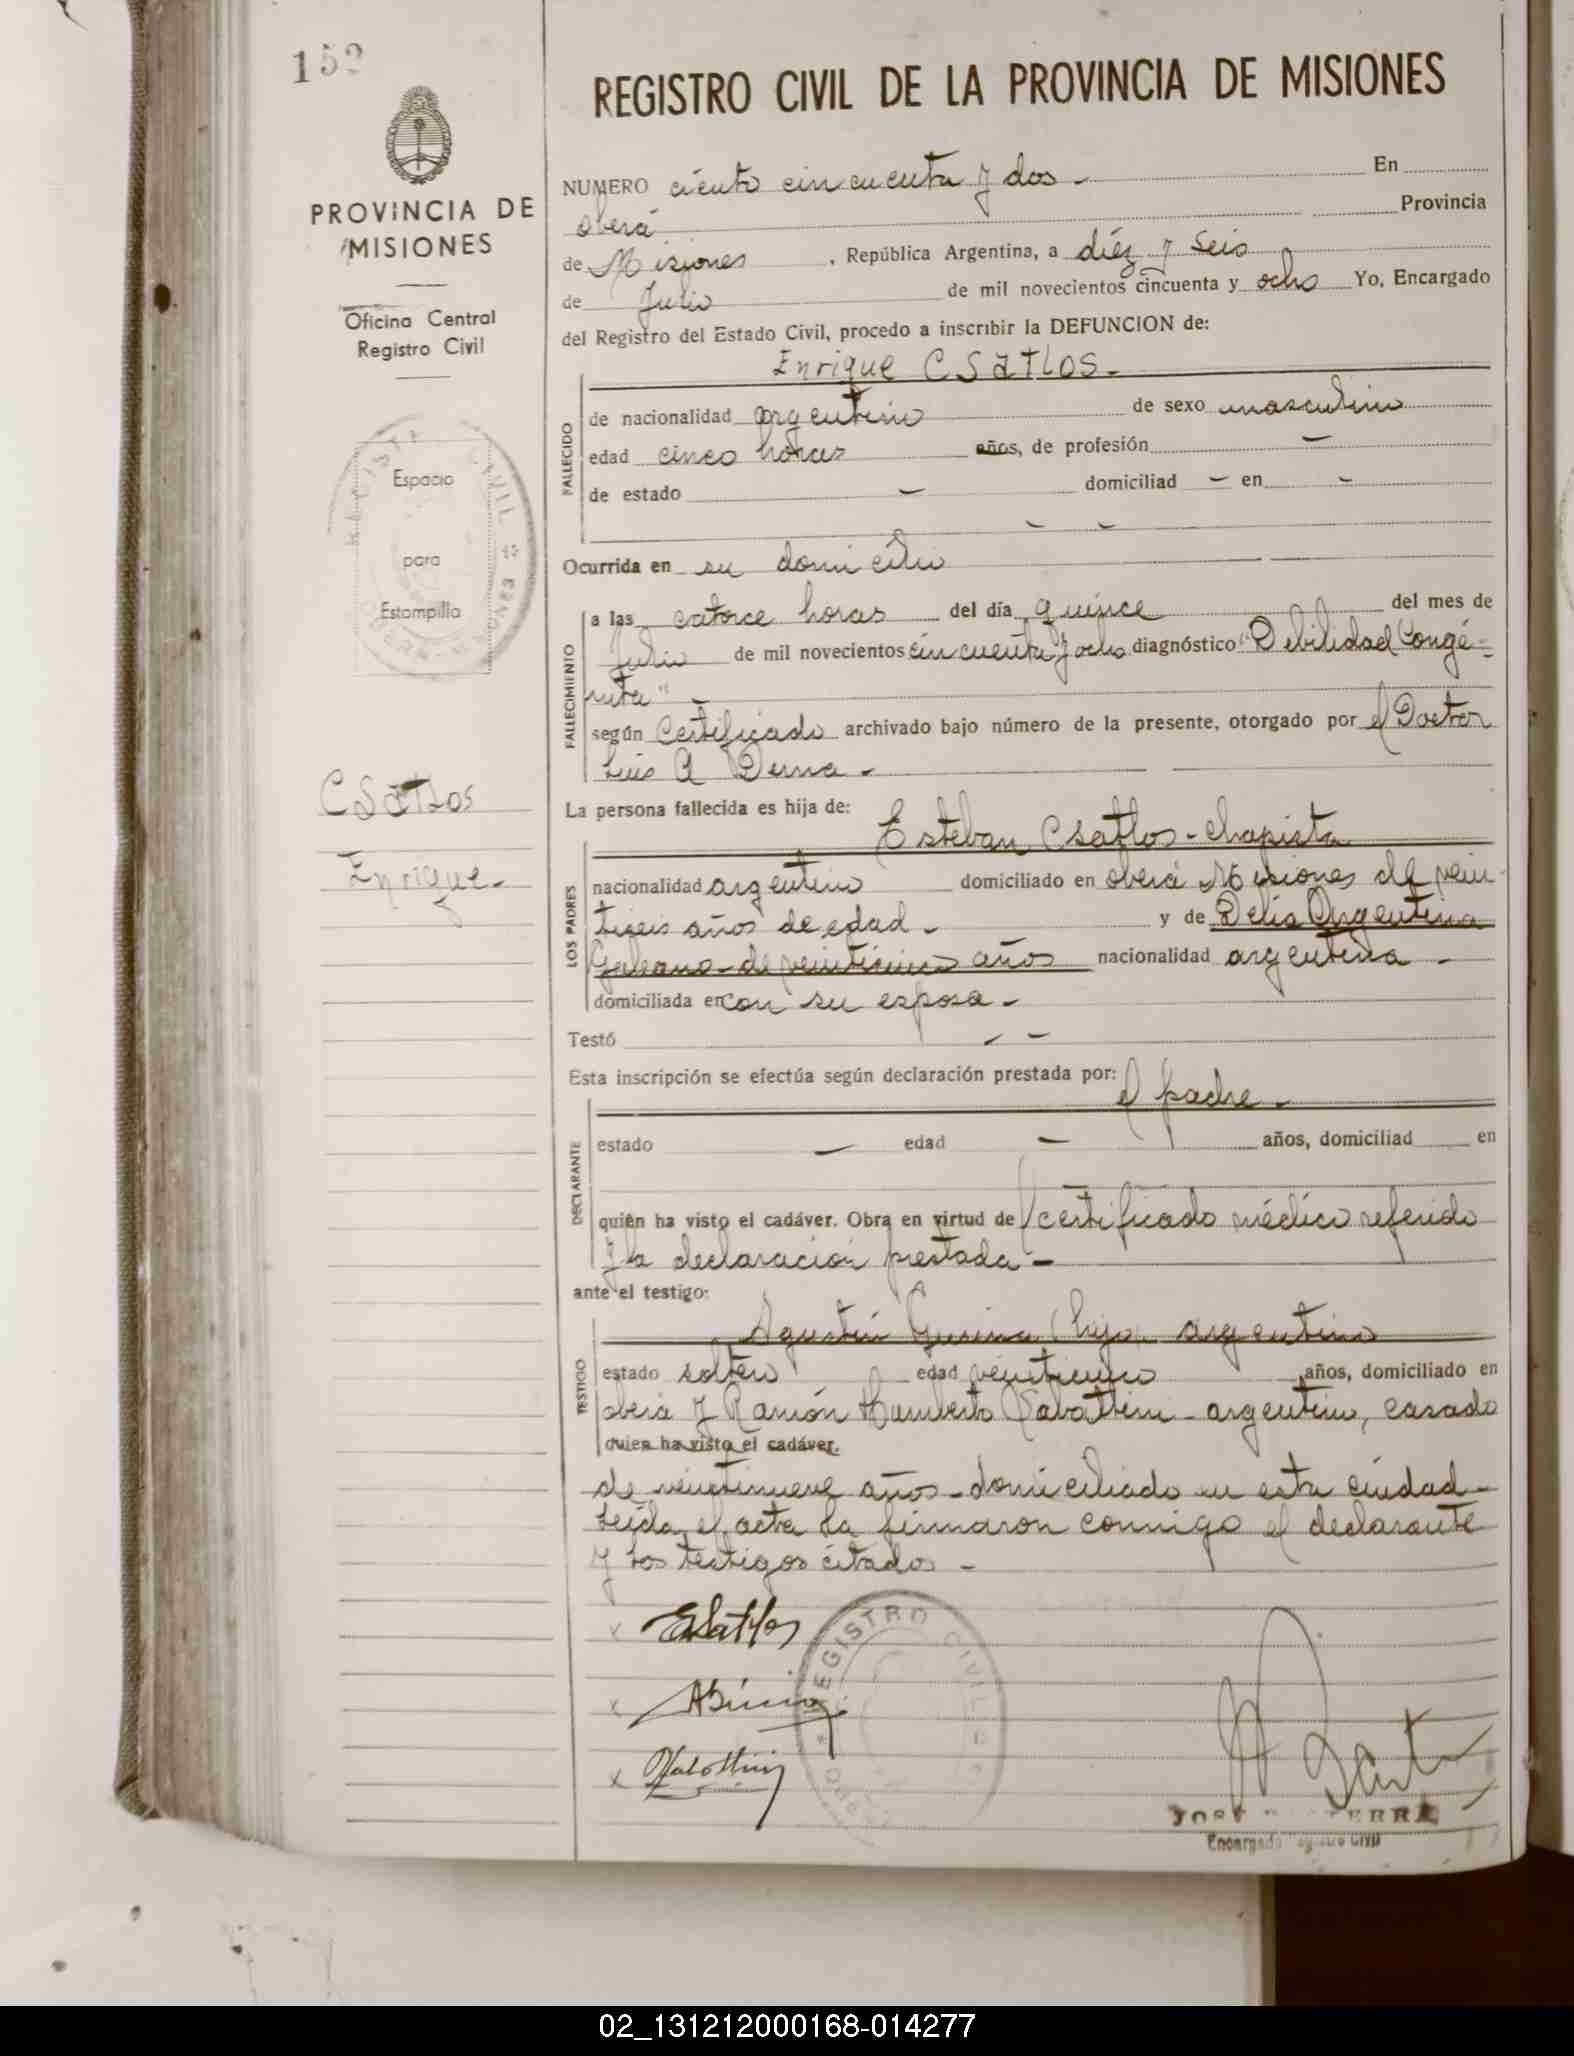 152
REGISTRO CIVIL DE LA PROVINCIA DE MISIONES
PROVINCIA DE
MISIONES
Oficina Central
Registro Civil
Espacio
para
Estampilla
NUMERO ciento cincuenta y dos - En
Oberá Provincia
de Misiones, República Argentina, a diéz y seis
de Julio de mil novecientos cincuenta y ocho Yo, Encargado
del Registro del Estado Civil, procedo a inscribir la DEFUNCION de:
Enrique CSATLOS.-
FALLECIDO
de nacionalidad argentino de sexo masculino
edad cinco horas años, de profesión —
de estado — domiciliad — en —
— —
Ocurrida en su domicilio
FALLECIMIENTO
a las catorce horas del día quince del mes de
Julio de mil novecientos cincuenta y ocho diagnóstico "Debilidad Congé-
nita" -
según Certificado archivado bajo número de la presente, otorgado por el Doctor
Luis A -
CSATLOS
Enrique-
La persona fallecida es hija de:
Esteban Csatlos - chapista
LOS PADRES
nacionalidad argentino domiciliado en Oberá Misiones de vein-
tiseis años de edad - y de Delia Argentina
Galeano - de veinticinco años nacionalidad argentina -
domiciliada en con su esposo -
Testó — —
Esta inscripción se efectúa según declaración prestada por:
el padre -
DECLARANTE
estado — edad — años, domiciliad en
quién ha visto el cadáver. Obra en virtud de certificado médico referido
y la declaración prestada -
ante el testigo:
Agustín (hijo) argentino
TESTIGO
estado soltero edad veinticinco años, domiciliado en
Oberá y Ramón Humberto Sabattini - argentino, casado
quien ha visto el cadáver.
de veintinueve años - domiciliado en esta ciudad -
Leida el acta la firmaron conmigo el declarante
y los testigos citados -
x ECsatlos
x
x
REGISTRO CIVIL
JOSE
Encargado Registro Civil
02_131212000168-014277